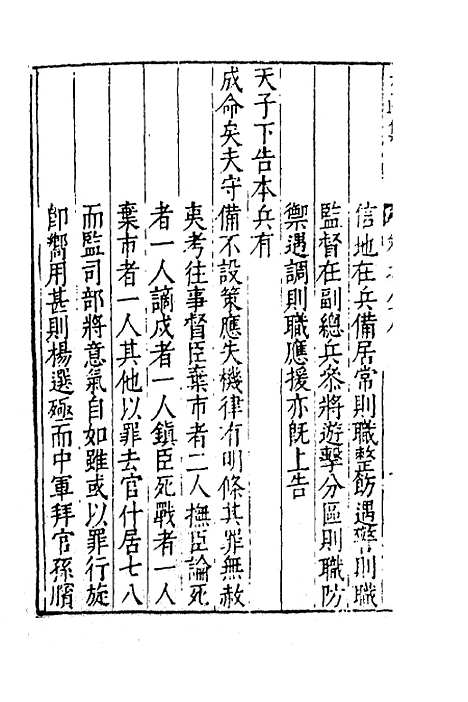 信地在兵備居常則職整飭遇警則職
監督在副總兵叅將遊擊分區則職防
禦遇調則職應援亦旣上告
天子下告本兵有
成命矣夫守備不設策應失機律有明條其罪無赦
夷考往事督臣棄市者二人撫臣論死
者一人謫戍者一人鎮臣死戰者一人
棄市者一人其他以罪去官什居七八
而監司部將意氣自如雖或以罪行旋
卽嚮用甚則楊選殛而中軍拜官孫臏